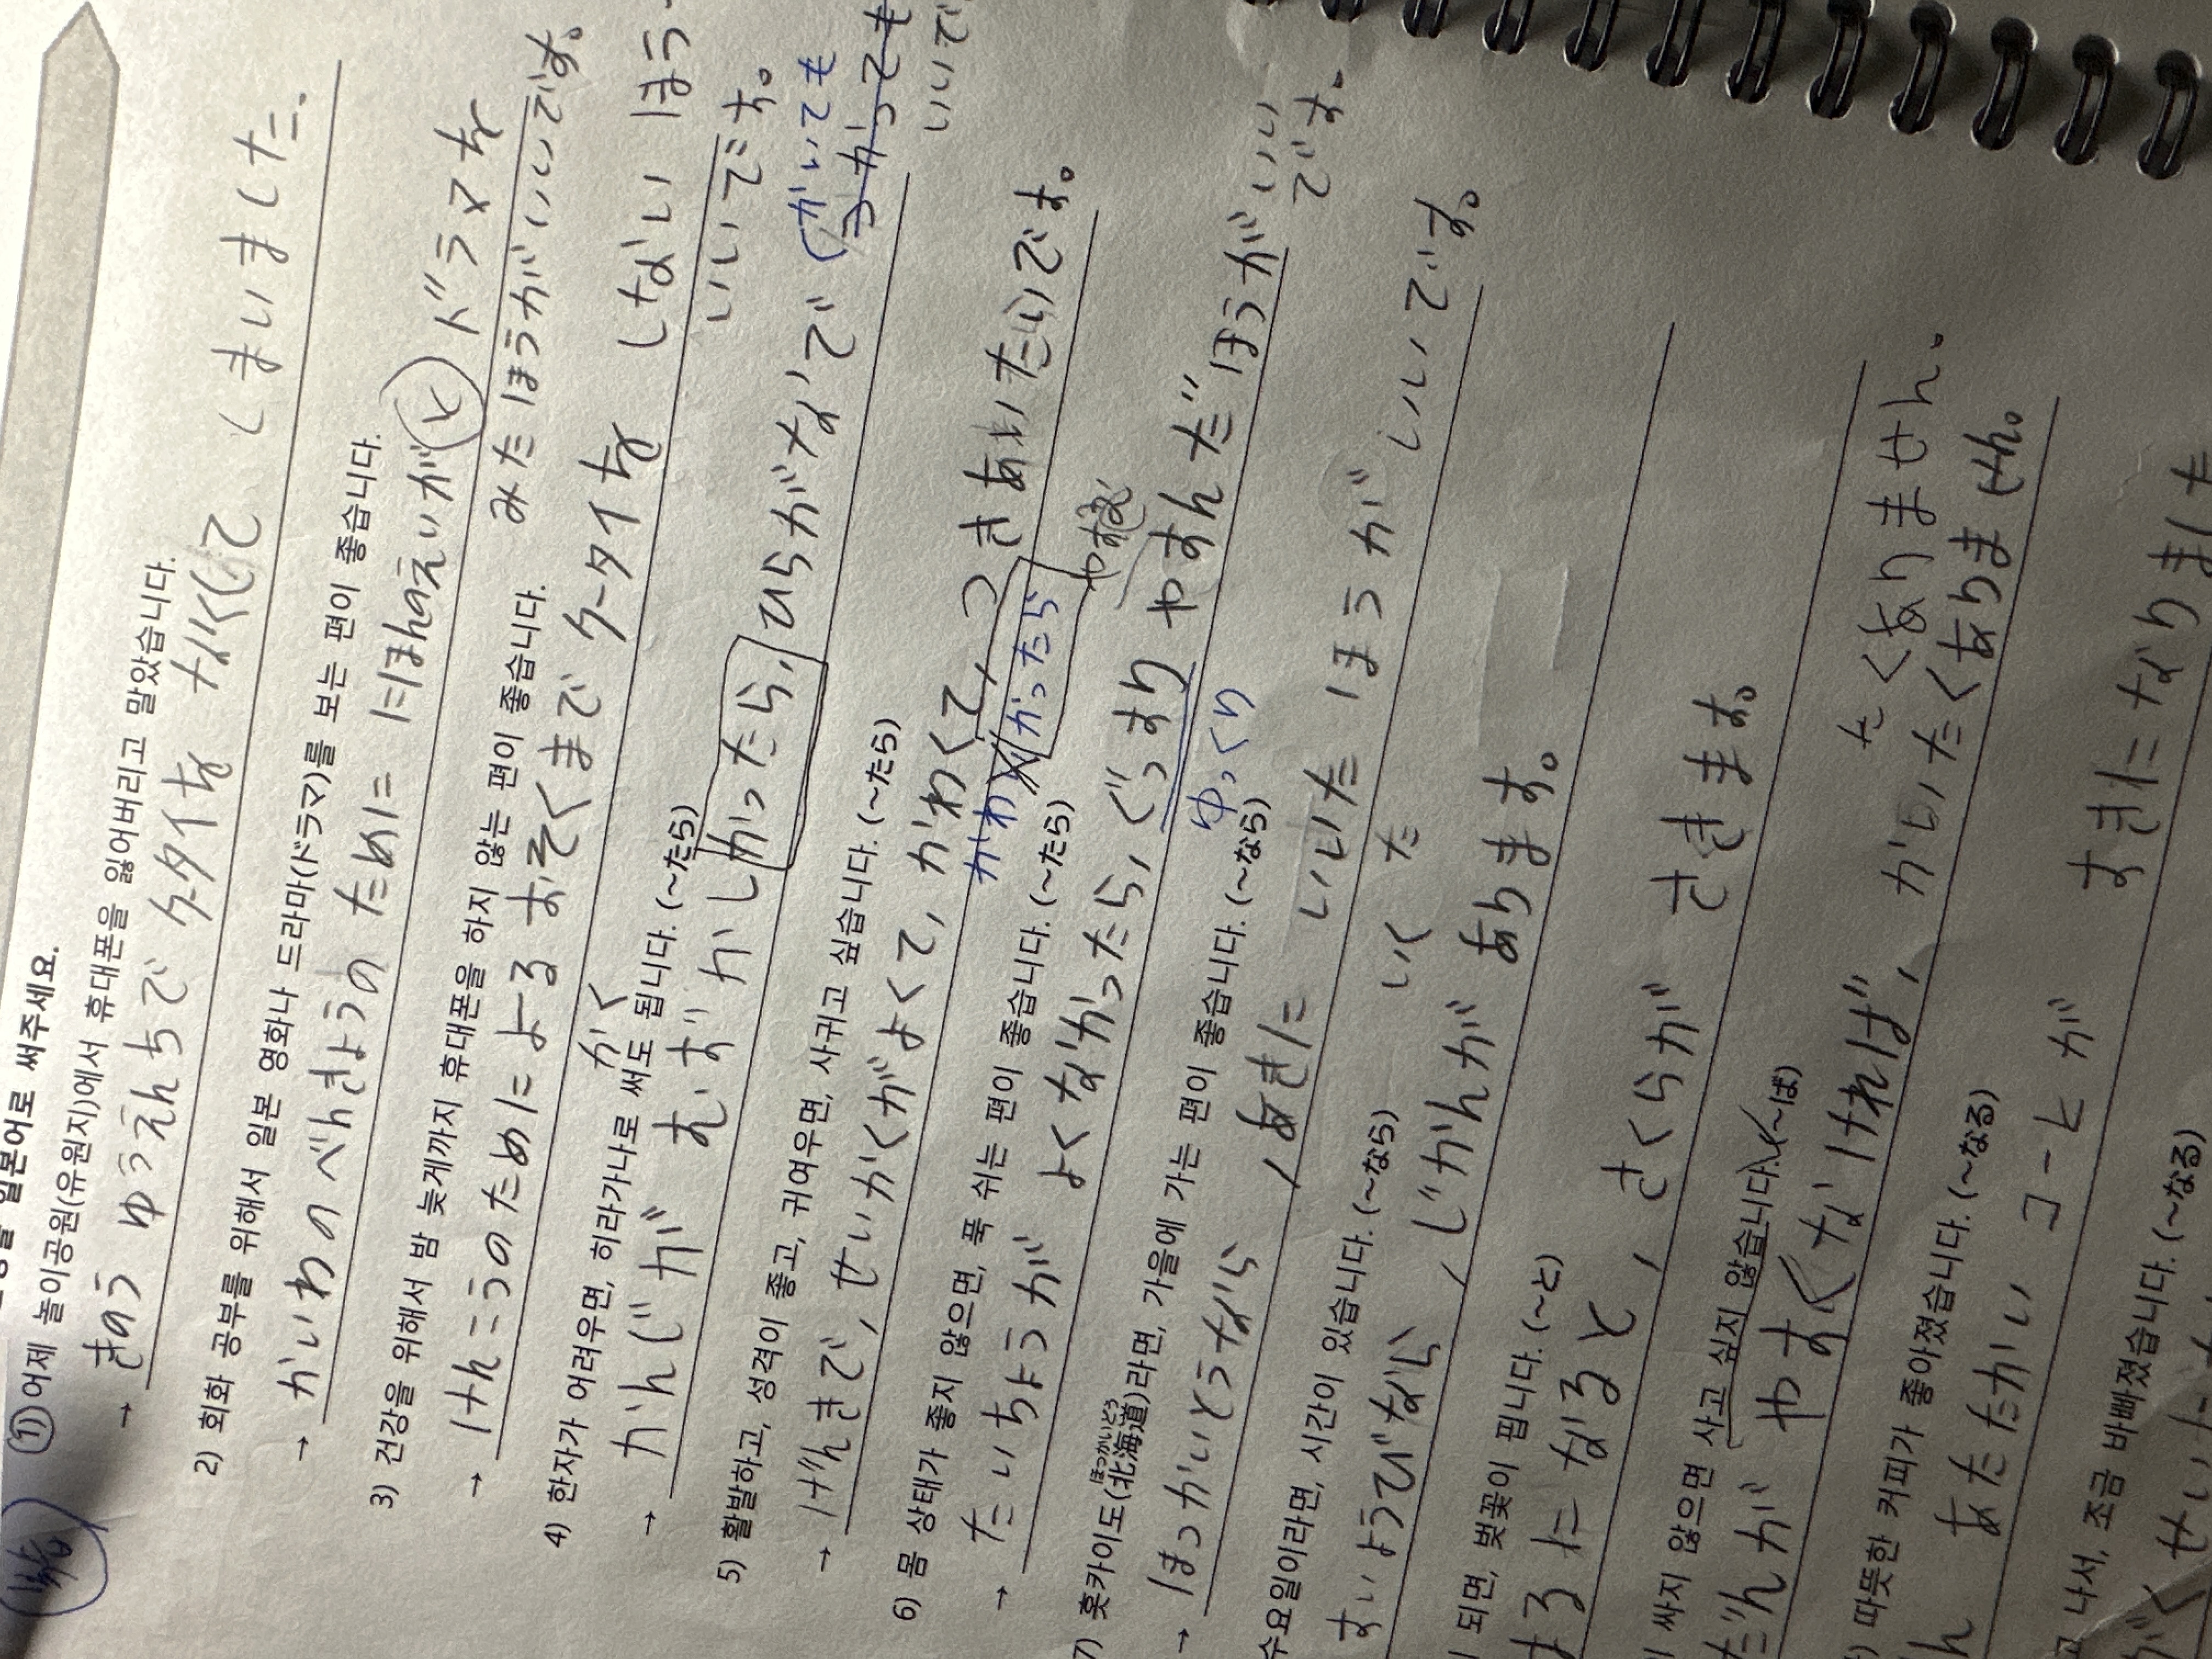 일본어로 써주세요.
1) 어제 놀이공원(유원지)에서 휴대폰을 잃어버리고 말았습니다.
→ きのう ゆうえんちで ケータイを なくして しまいました.
2) 회화 공부를 위해서 일본 영화나 드라마(ドラマ)를 보는 편이 좋습니다.
→ かいわの べんきょうの ために にほんのえいが と ドラマを
みた ほうが いいです。
3) 건강을 위해서 밤 늦게까지 휴대폰을 하지 않는 편이 좋습니다.
→ けんこうの ために よる おそくまで ケータイを しない ほう
いいです。
4) 한자가 어려우면, 히라가나로 써도 됩니다. (~たら)
かく
→ かんじが むずかしかったら, ひらがなで (かいても
いいで
5) 활발하고, 성격이 좋고, 귀여우면, 사귀고 싶습니다. (~たら)
→ げんきで, せいかくが よくて, かわくて, つきあいたいです。
かわ かったら
6) 몸 상태가 좋지 않으면, 푹 쉬는 편이 좋습니다. (~たら)
→ たいちょうが よくなかったら, ぐっすり やすんだ ほうが いい
です.
ゆっくり
7) 홋카이도(北海道)라면, 가을에 가는 편이 좋습니다. (~なら)
ほっかいどう
→ ほっかいとうなら , あきに いいた ほうが いいです。
いく た
수요일이라면, 시간이 있습니다. (~なら)
すいようびなら , じかんが あります。
되면, 벚꽃이 핍니다. (~と)
はるに なると , さくらが さきます。
싸지 않으면 사고 싶지 않습니다. (~ば)
たくありません.
だんが やすくなければ, かいたくありません。
따뜻한 커피가 좋아졌습니다. (~なる)
ん あたたかい コーヒが すきに なりました
고 나서, 조금 바빠졌습니다. (~なる)